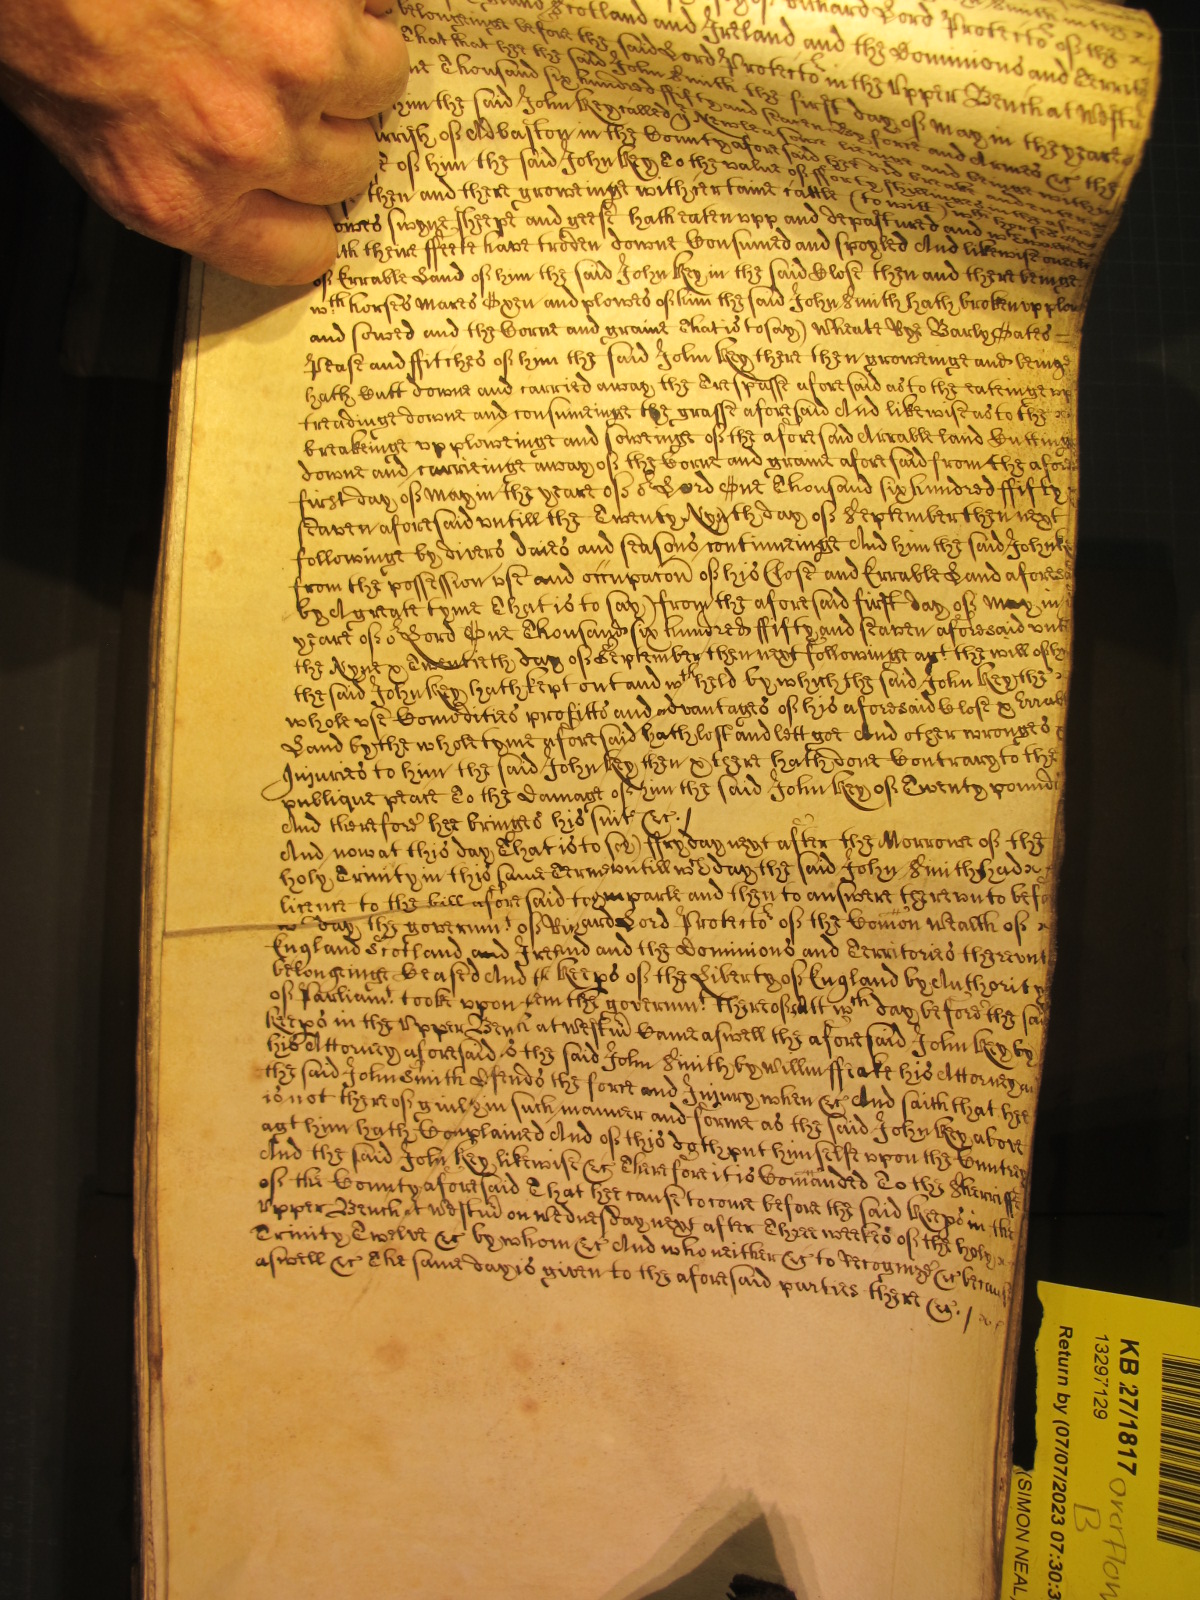 Scotland and Ireland and the Dominions and Territ
belonginge before the said Lord Protector in the Upper Bench at Westm
That that hee the said John Smith the first day of May in the yeare
one Thousand six hundred fifty and seaven By force and Armes &c the
him the said John Key called Newlease
parrish of Alvaston in the County aforesaid hee did breake and enter
of him the said John Key To the value of fforty shillings
then and there groweinge with certaine cattle (to witt)
Cowes swyne sheepe and geese hath eaten upp and depastured and
with theire ffeete have troden downe Consumed and spoyled And likewise
of Errable Land of him the said John Key in the said Close then and there beinge
wth horses mares Oxen and plowes of him the said John Smith hath broken up plow
and sowed and the Corne and graine That is to say) Wheate Rye Barly Oates
Pease and ffitches of him the said John Key there then groweinge and beinge
hath Cutt downe and carried away the Trespasse aforesaid as to the eateinge up
treadinge downe and consumeinge the grasse aforesaid And likewise as to the
breakeinge up ploweinge and soweinge of the aforesaid Arrable land Cuttinge
downe and carrieinge away of the Corne and graine aforesaid from the afore
first day of May in the yeare of or Lord One Thousand six hundred ffifty
seaven aforesaid untill the Twenty Nynth day of September then next
followinge by divers daies and seasons continueinge And him the said John Key
from the possession use and occupacon of his Close and Errable Land aforesaid
by A greate tyme That is to say) from the aforesaid first day of May in
yeare of or Lord One Thousand six hundred ffifty and seaven aforesaid untill
the Nyne & Twentieth day of September then next followinge agt the will of him
the said John Key hath kept out and wth held by which the said John Key the
whole use Comodities profitts and advantages of his aforesaid Close & Errable
Land by the whole tyme aforesaid hath lost and lett goe And other wronges
Injuries to him the said John Key then & there hath done Contrary to the
publique peace To the damage of him the said John Key of Twenty pounds
And therefore hee bringes his suite &c./
And now at this day That is to say) ffryday next after the Morrowe of the
holy Trinity in this same Terme untill wch day the said John Smith had
licence to the bill aforesaid to imparle and then to answere thereunto before
wch day the governmt of Richard Lord Protector of the Comon Wealth of
England Scotland and Ireland and the Dominions and Territories thereunto
belonginge Ceased And the Keeps of the Liberty of England by Authority
of Parliamt took upon them the governmt thereof Att wch day before the said
Keeps in the Upper Bench at Westm Came aswell the aforesaid John Key by
his Attorney aforesaid as the said John Smith by Willm ffeake his Attorney And
the said John Smith defends the force and Injury when &c And saith that hee
is not thereof guilty in such manner and forme as the said John Key above
agt him hath Complained And of this doth put himselfe upon the Cuntrey
And the said John Key likewise &c Therefore it is Comanded To the Sheriffe
of the County aforesaid That hee cause to come before the said Keeps in the
Upper Bench at Westm on Wednesday next after Three weekes of the holy
Trinity Twelve &c by whom &c And who neither &c to Recognize &c because
aswell &c The same day is given to the aforesaid parties there &c./
KB 27/1817
13297129
Return by (07/07/2023 07:30:3
(SIMON NEAL,
overflow
B